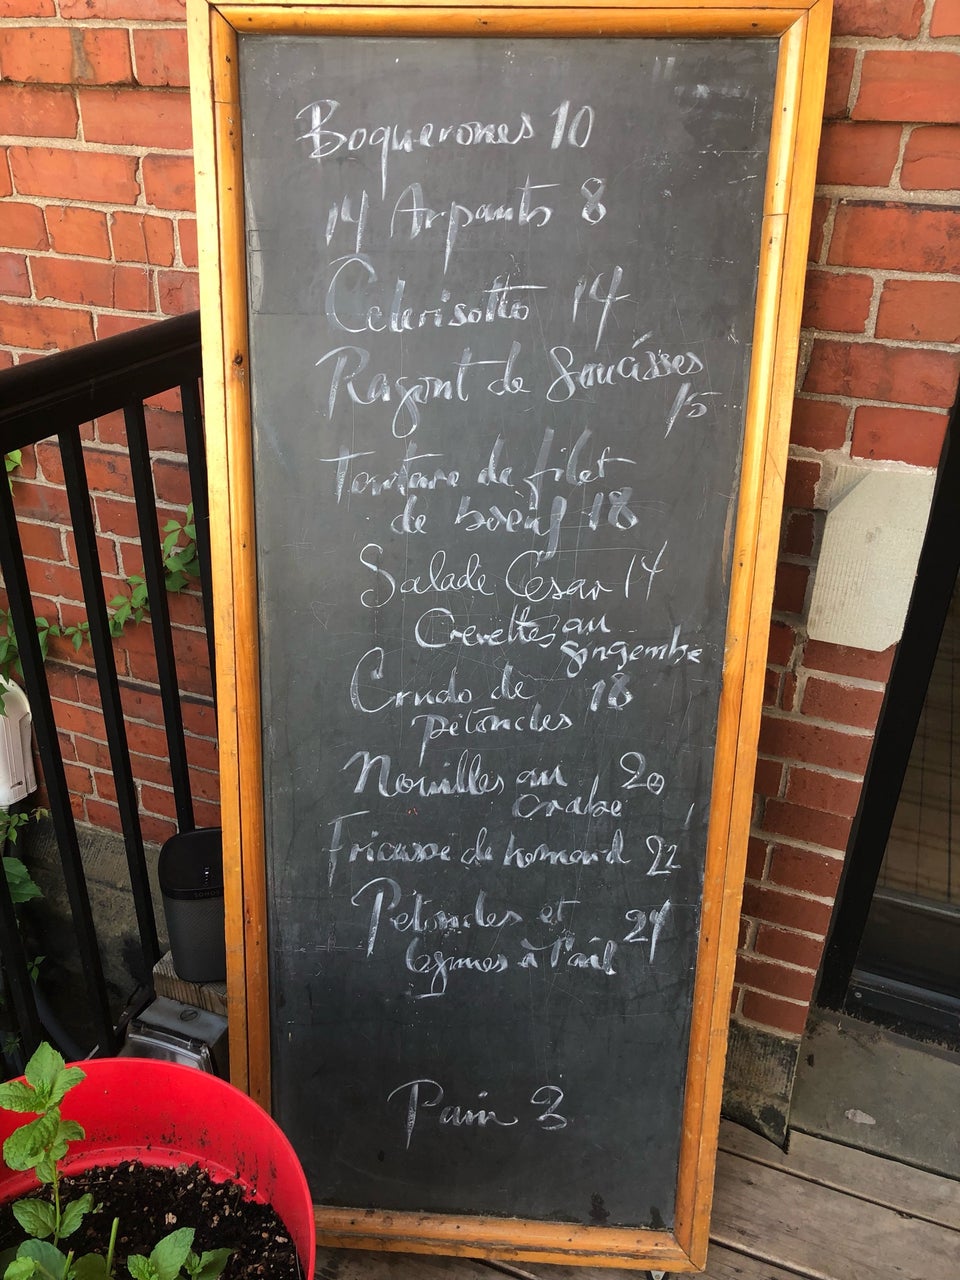 Boquerones 10
14 Arpents 8
Celerisotto 14
Ragout de Saucisses
15
Tartare de filet
de boeuf 18
Salade Cesar 14
Crevettes au
gingembre
Crudo de 18
pétoncles
Nouilles au 20
crabe
Fricasse de homard 22
Pétoncles et 24
légumes à l'ail
Pain 3
SONOS